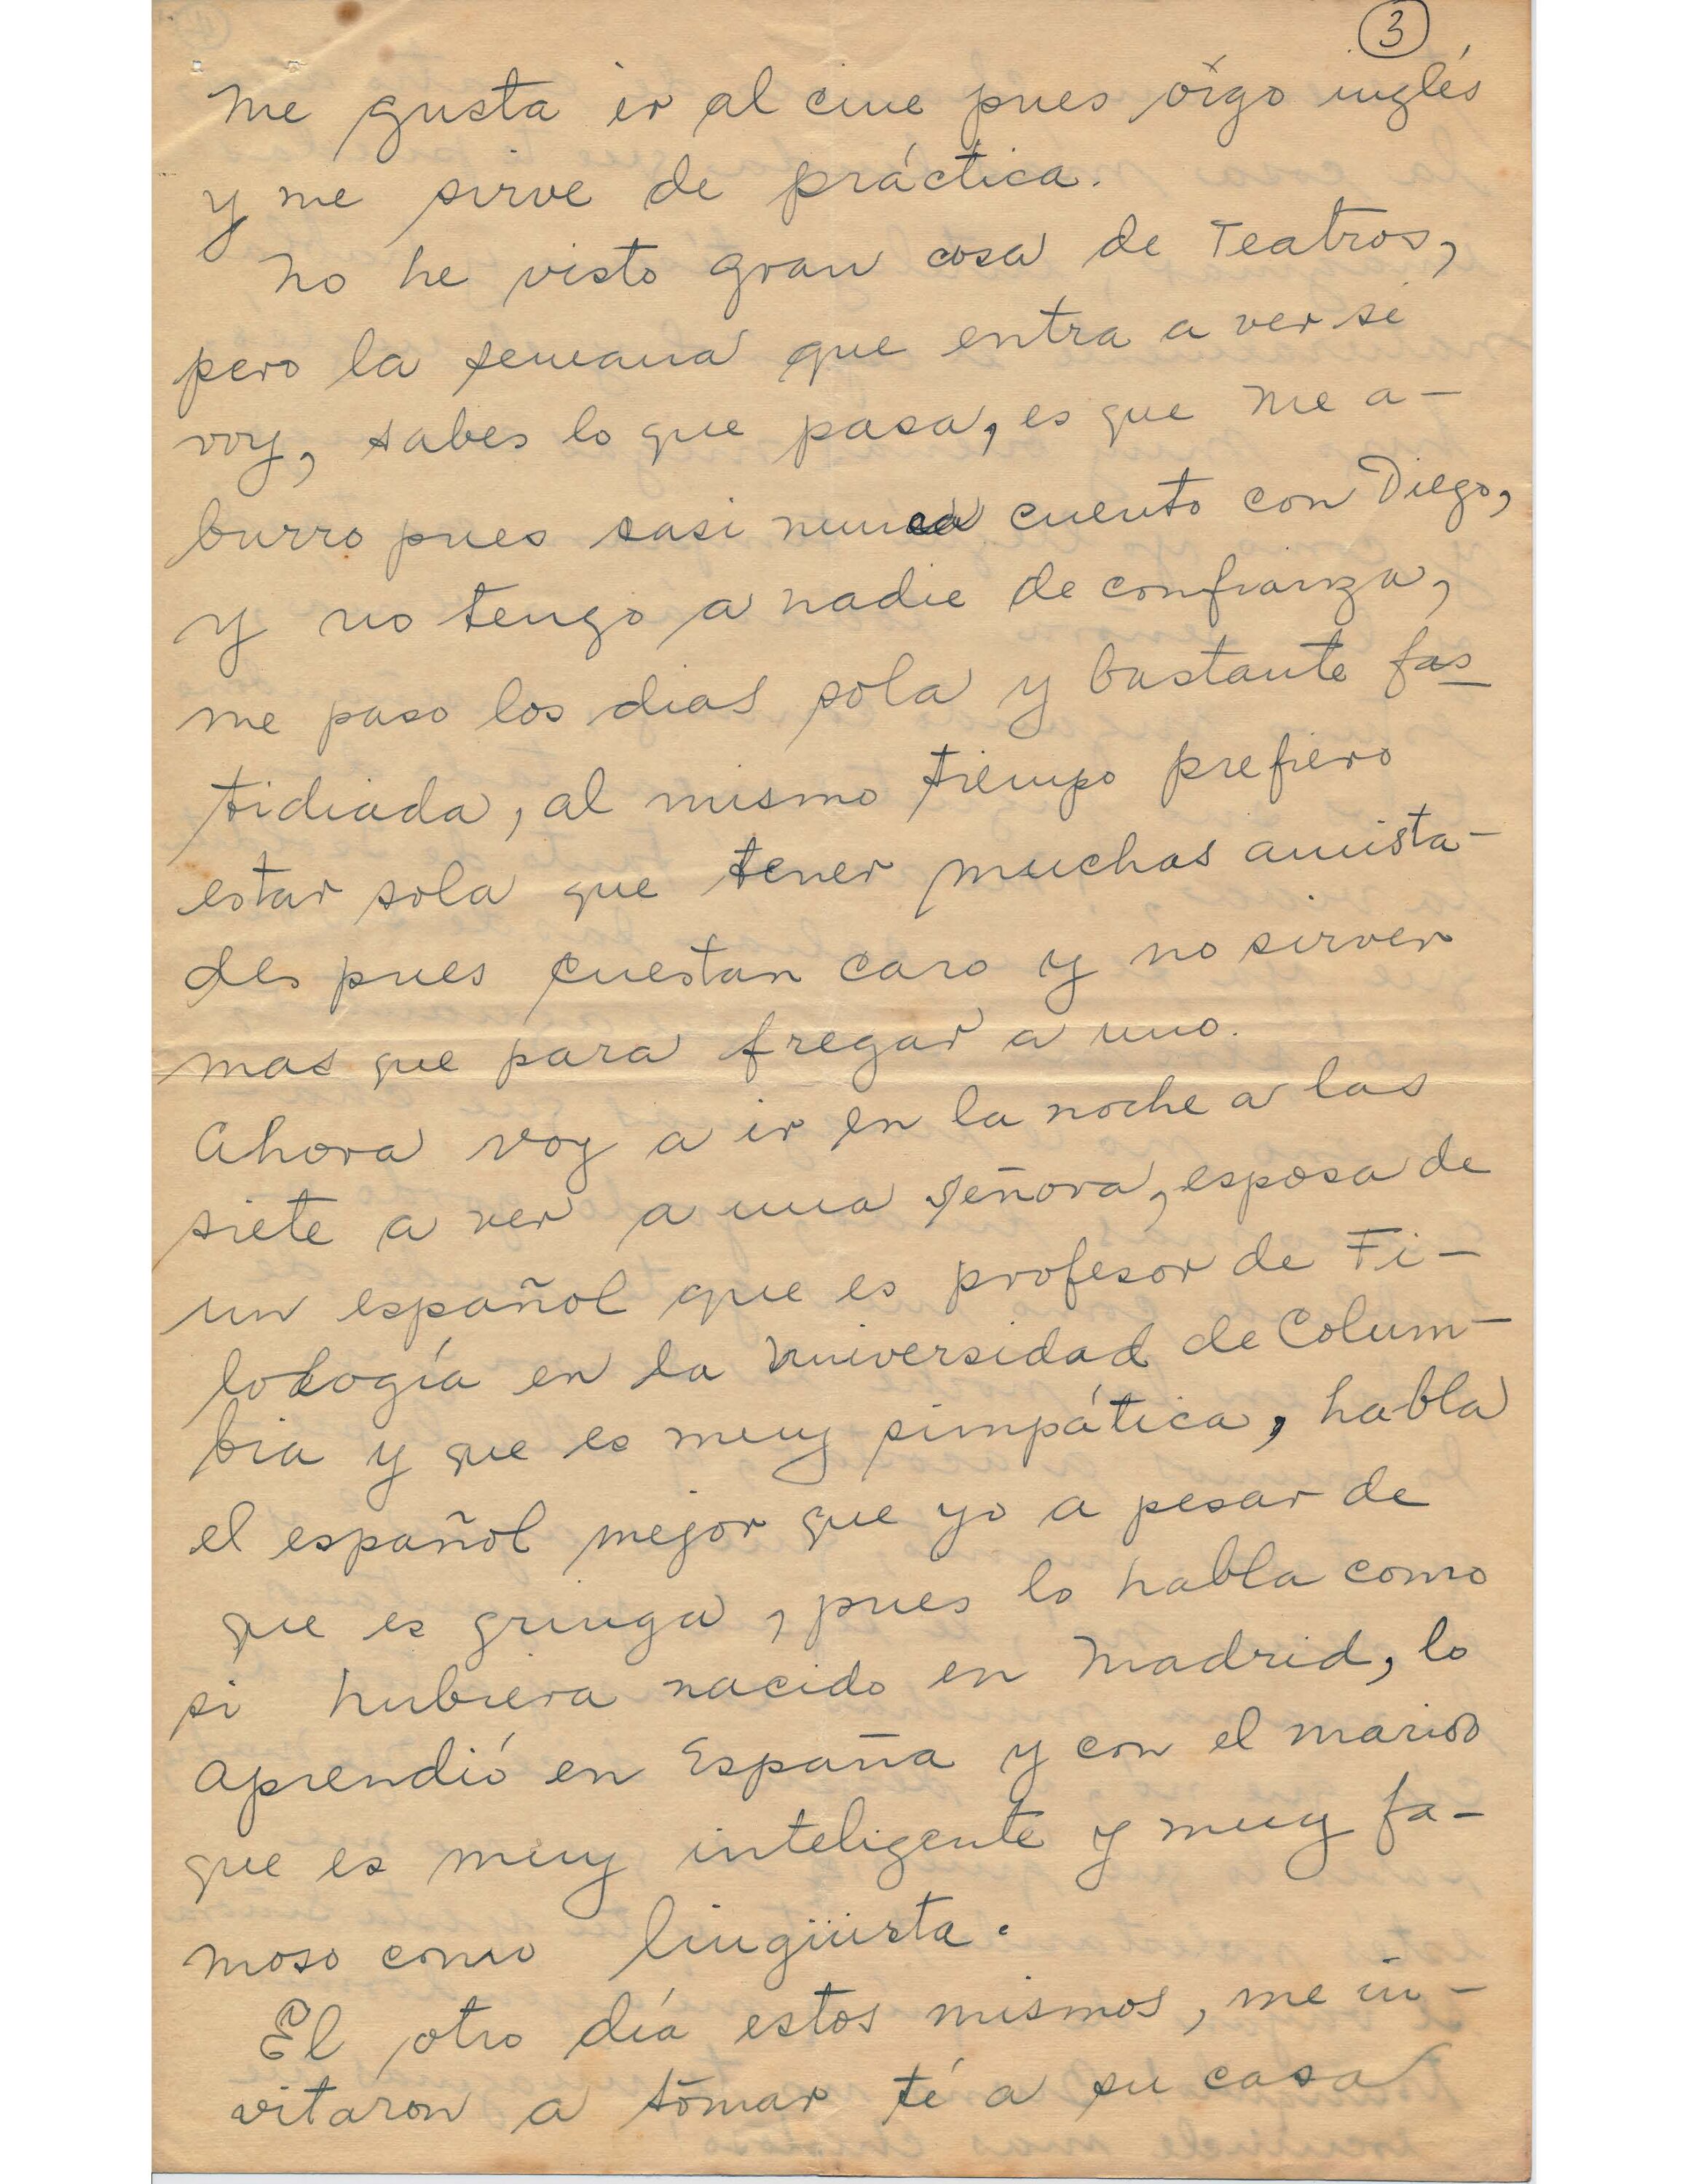 3
me gusta ir al cine pues óigo inglés
y me sirve de práctica.
No he visto gran cosa de Teatros,
pero la semana que entra a ver si
voy, sabes lo que pasa, es que me a-
burro pues casi nunca cuento con Diego,
y no tengo a nadie de confianza,
me paso los dias sola y bastante fas
tidiada, al mismo tiempo prefiero
estar sola que tener muchas amista-
des pues cuestan caro y no sirven
mas que para fregar a uno.
Ahora voy a ir en la noche a las
siete a ver a una señora, esposa de
un español que es profesor de Fi-
lología en la Universidad de Colum-
bia y que es muy simpática, habla
el español mejor que yo a pesar de
que es gringa, pues lo habla como
si hubiera nacido en Madrid, lo
aprendió en España y con el marido
que es muy inteligente y muy fa-
moso como lingüista.
El otro día estos mismos, me in-
vitaron a tomar té a su casa